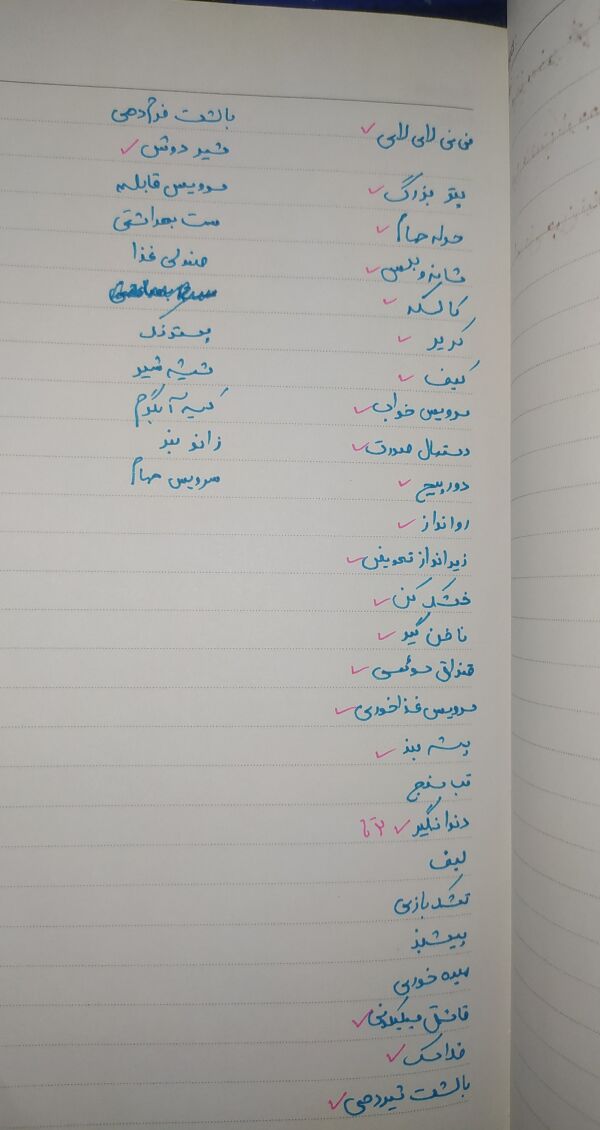 نی نی لای لای ✓
پتو بزرگ ✓
حوله حمام ✓
شانه و برس ✓
کالسکه ✓
کریر ✓
کیف ✓
سرویس خواب ✓
دستمال مرطوب ✓
دورپیچ ✓
روانداز ✓
زیرانداز تعویض ✓
خشک کن ✓
ناخن گیر ✓
قنداق ✓
سرویس غذاخوری ✓
پشه بند ✓
تب سنج
دندانگیر ✓ ۲ تا
لیف
تشک بازی
پیشبند
میوه خوری
قاشق سیلیکونی ✓
✓
بالشت شیردهی ✓
بالشت فرم دهی
شیر دوش ✓
سرویس قابلمه
ست بهداشتی
صندلی غذا
پستونک
شیشه شیر
کیسه آبگرم
زانو بند
سرویس حمام